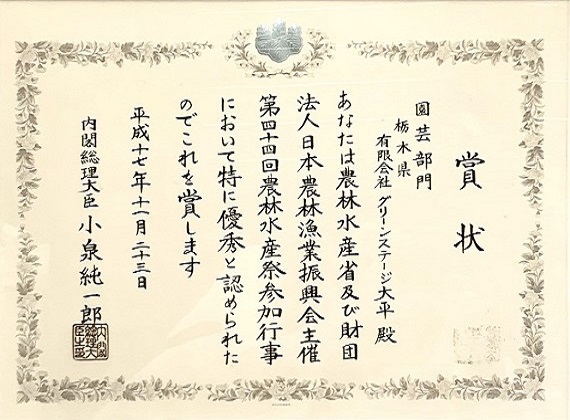 賞状
園芸部門
栃木県
有限会社 グリーンステージ大平 殿
あなたは農林水産省及び財団
法人日本農林漁業振興会主催
第四十四回農林水産祭参加行事
において特に優秀と認められた
のでこれを賞します
平成十七年十一月二十三日
内閣総理大臣 小泉純一郎